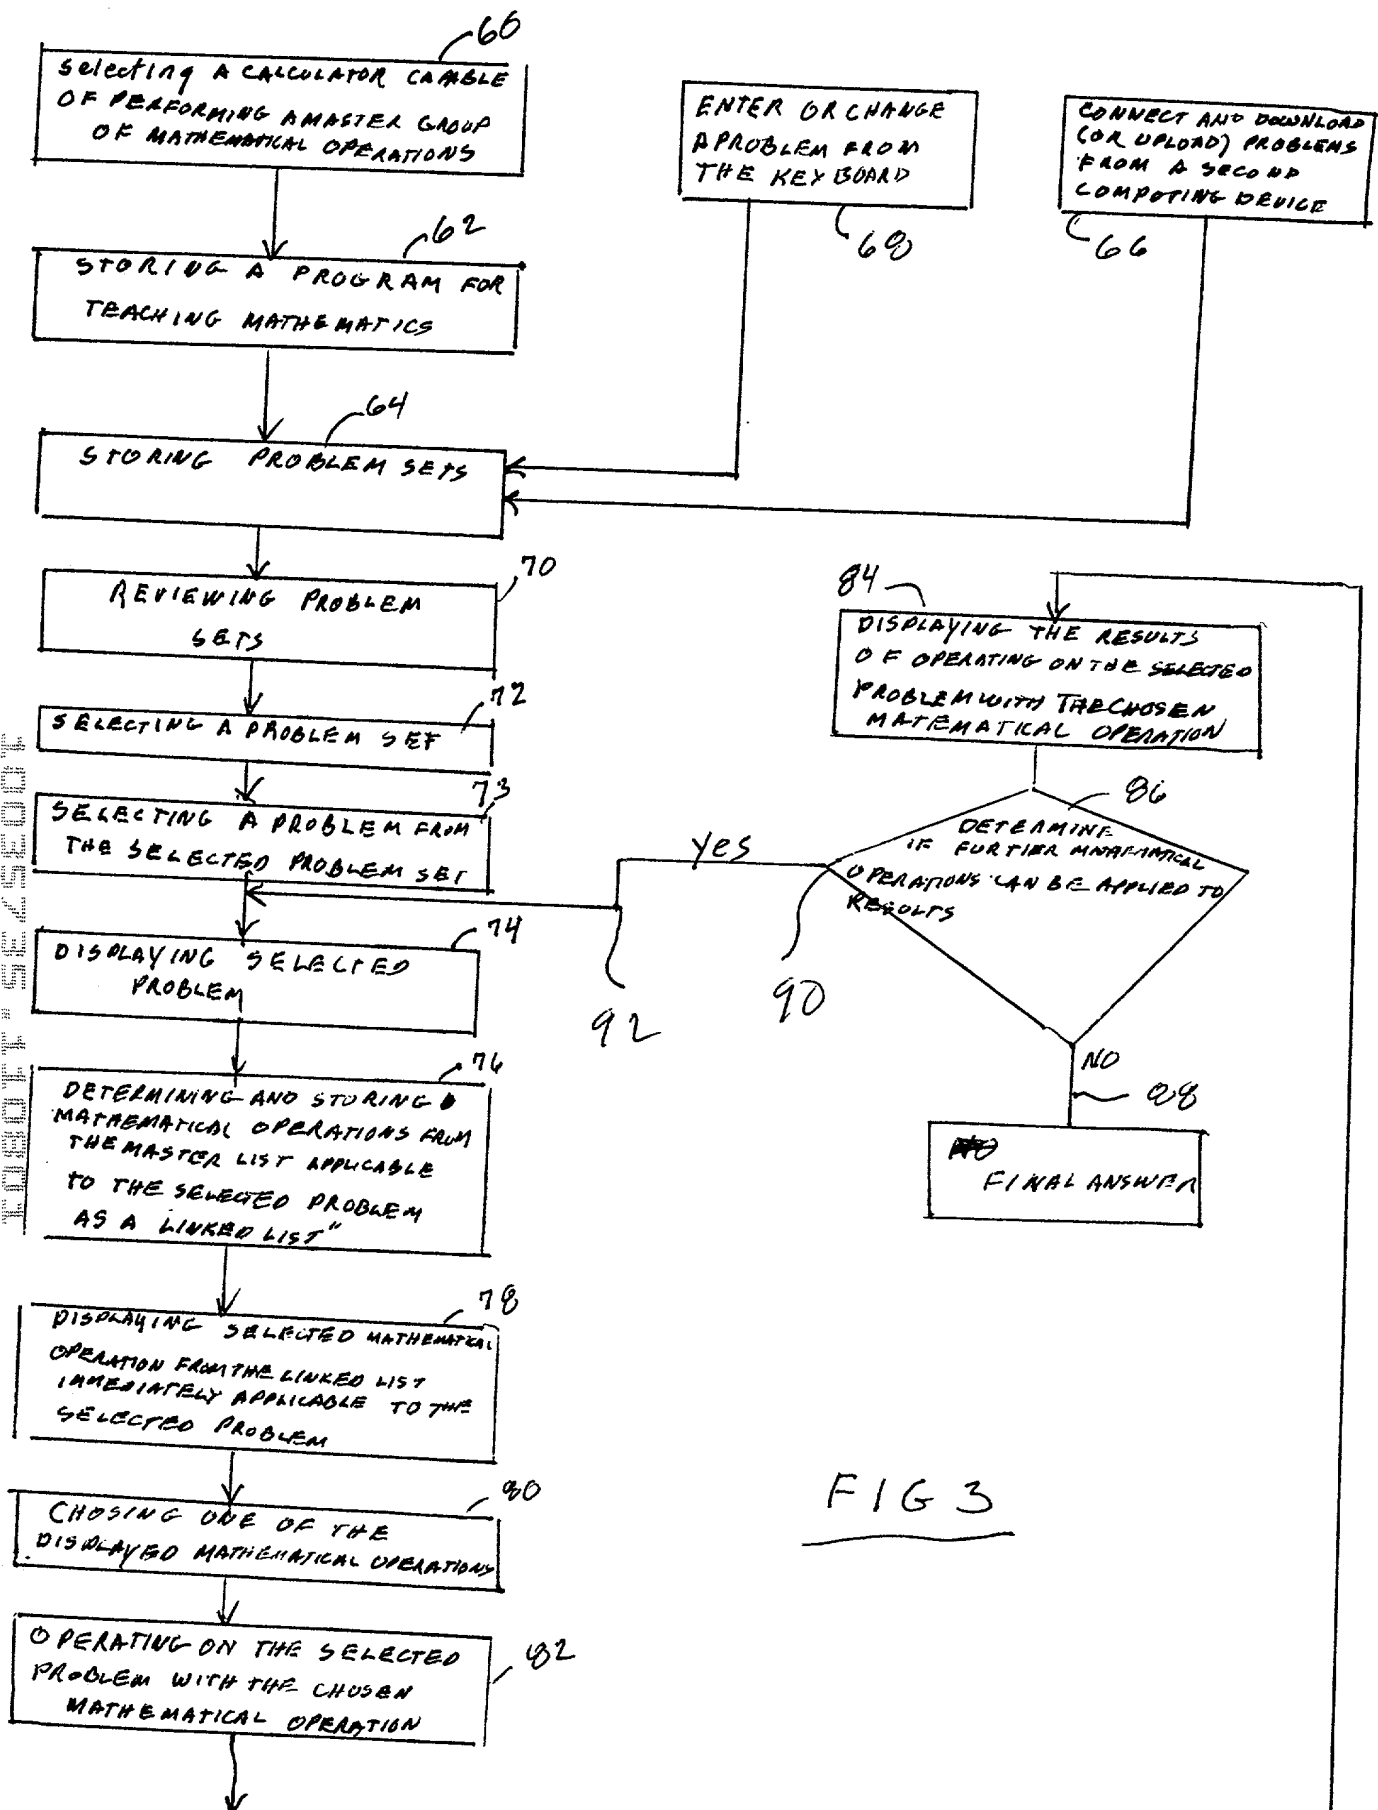 60
Selecting A CALCULATOR CAPABLE
OF PERFORMING A MASTER GROUP
OF MATHEMATICAL OPERATIONS
62
STORING A PROGRAM FOR
TEACHING MATHEMATICS
64
STORING PROBLEM SETS
ENTER OR CHANGE
A PROBLEM FROM
THE KEYBOARD
68
CONNECT AND DOWNLOAD
(OR UPLOAD) PROBLEMS
FROM A SECOND
COMPUTING DEVICE
66
70
REVIEWING PROBLEM
SETS
72
SELECTING A PROBLEM SET
73
SELECTING A PROBLEM FROM
THE SELECTED PROBLEM SET
74
DISPLAYING SELECTED
PROBLEM
76
DETERMINING AND STORING
MATHEMATICAL OPERATIONS FROM
THE MASTER LIST APPLICABLE
TO THE SELECTED PROBLEM
AS A LINKED LIST"
78
DISPLAYING SELECTED MATHEMATICAL
OPERATION FROM THE LINKED LIST
IMMEDIATELY APPLICABLE TO THE
SELECTED PROBLEM
80
CHOSING ONE OF THE
DISPLAYED MATHEMATICAL OPERATIONS
82
OPERATING ON THE SELECTED
PROBLEM WITH THE CHOSEN
MATHEMATICAL OPERATION
84
DISPLAYING THE RESULTS
OF OPERATING ON THE SELECTED
PROBLEM WITH THE CHOSEN
MATEMATICAL OPERATION
86
DETERMINE
IF FURTIER MATHEMATICAL
OPERATIONS CAN BE APPLIED TO
RESULTS
yes
90
92
NO
88
FINAL ANSWER
FIG 3